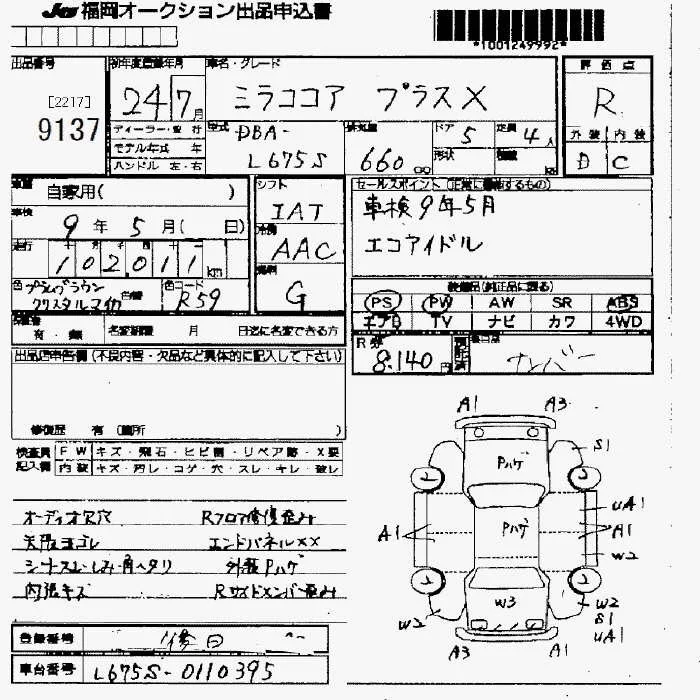 JU 福岡オークション出品申込書
*1001249992*
出品番号
[2217]
9137
初年度登録年月
24 7月
ディーラー・並行
モデル年式 年
ハンドル 左・右
車名・グレード
ミラココア プラスX
型式
DBA-
L675S
排気量
660 cc
ドア 5
形状
定員 4人
積載 kg
評価点
R
外装 内装
D C
車歴
自家用( )
車検
9年5月( 日)
走行
102,011 km
色 プラムブラウン
クリスタルマイカ
色替
色コード
R59
シフト
IAT
冷房
AAC
燃料
G
セールスポイント(正常に機能するもの)
車検9年5月
エコアイドル
装備品(純正品に限る)
PS PW AW SR ABS
エアB TV ナビ カワ 4WD
保証書
有・無
名変期限 月 日迄に名変できる方
R券
8,140円
預託済
ナンバー
出品店申告欄(不良内容・欠品など具体的に記入して下さい)
修復歴 有(箇所
検査員記入欄
FW キズ・飛石・ヒビ割・リペア跡・X要
内装 キズ・汚レ・コゲ・穴・スレ・キレ・破レ
オーディオ欠穴
天張ヨゴレ
シートスレ・しみ・角ヘタリ
内張キズ
Rフロア修復歪み
エンドパネルXX
外装Pハゲ
Rサイドメンバー歪み
A1 A3
S1
Pハゲ
2 2
uA1
A1 Pハゲ A1
W2
2 2
W3
W2 W2
S1
uA1
A3 A1
登録番号
車台番号
L675S-0110395